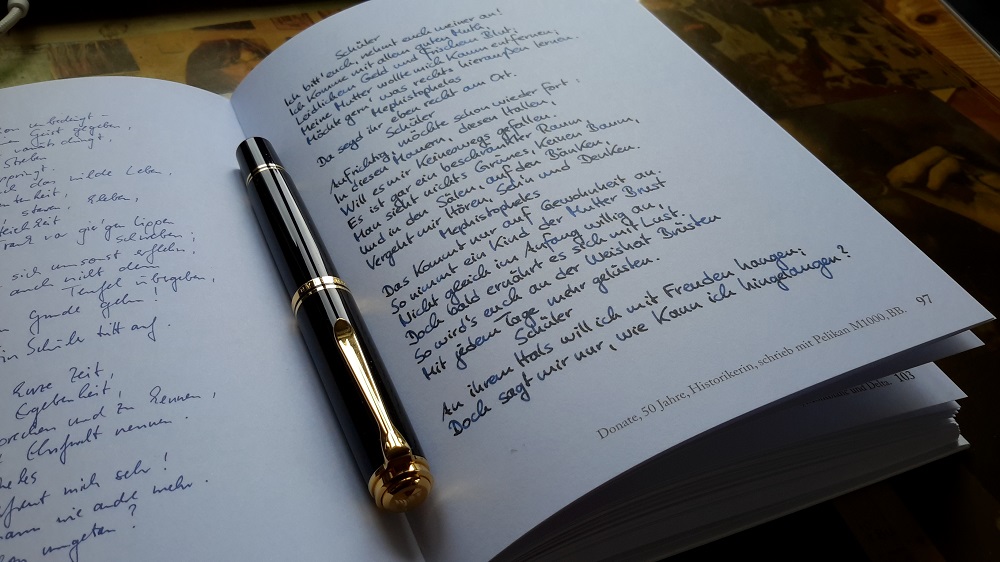 unbedingt –
Geist gegeben,
Streben
das wilde Leben,
starren, kleben,
vor gier'gen Lippen
schweben;
sich umsonst erflehen,
auch nicht dem
Teufel übergeben,
Grunde gehn!
Schüler tritt auf.
kurze Zeit,
Ergebenheit,
und zu kennen,
Ehrfurcht nennen.
mich sehr!
wie andre mehr.
umgetan?
Schüler
Ich bitt' euch, nehmt euch meiner an!
Ich komme mit allem guten Mut,
Leidlichem Geld und frischem Blut;
Meine Mutter wollte mich kaum entfernen;
Möcht gern' was rechts hieraußen lernen.
Mephistopheles
Da seyd ihr eben recht am Ort.
Schüler
Aufrichtig, möchte schon wieder fort:
In diesen Mauern, diesen Hallen,
Will es mir keineswegs gefallen.
Es ist ein gar beschränkter Raum,
Man sieht nichts Grünes, keinen Baum,
Und in den Sälen, auf den Bänken,
Vergeht mir Hören, Seh'n und Denken.
Mephistopheles
Das kommt nur auf Gewohnheit an.
So nimmt ein Kind der Mutter Brust
Nicht gleich im Anfang willig an,
Doch bald ernährt es sich mit Lust.
So wird's euch an der Weisheit Brüsten
Mit jedem Tage mehr gelüsten.
Schüler
An ihrem Hals will ich mit Freuden hangen;
Doch sagt mir nur, wie kann ich hingelangen?
Donate, 50 Jahre, Historikerin, schrieb mit Pelikan M1000, BB. 97
103